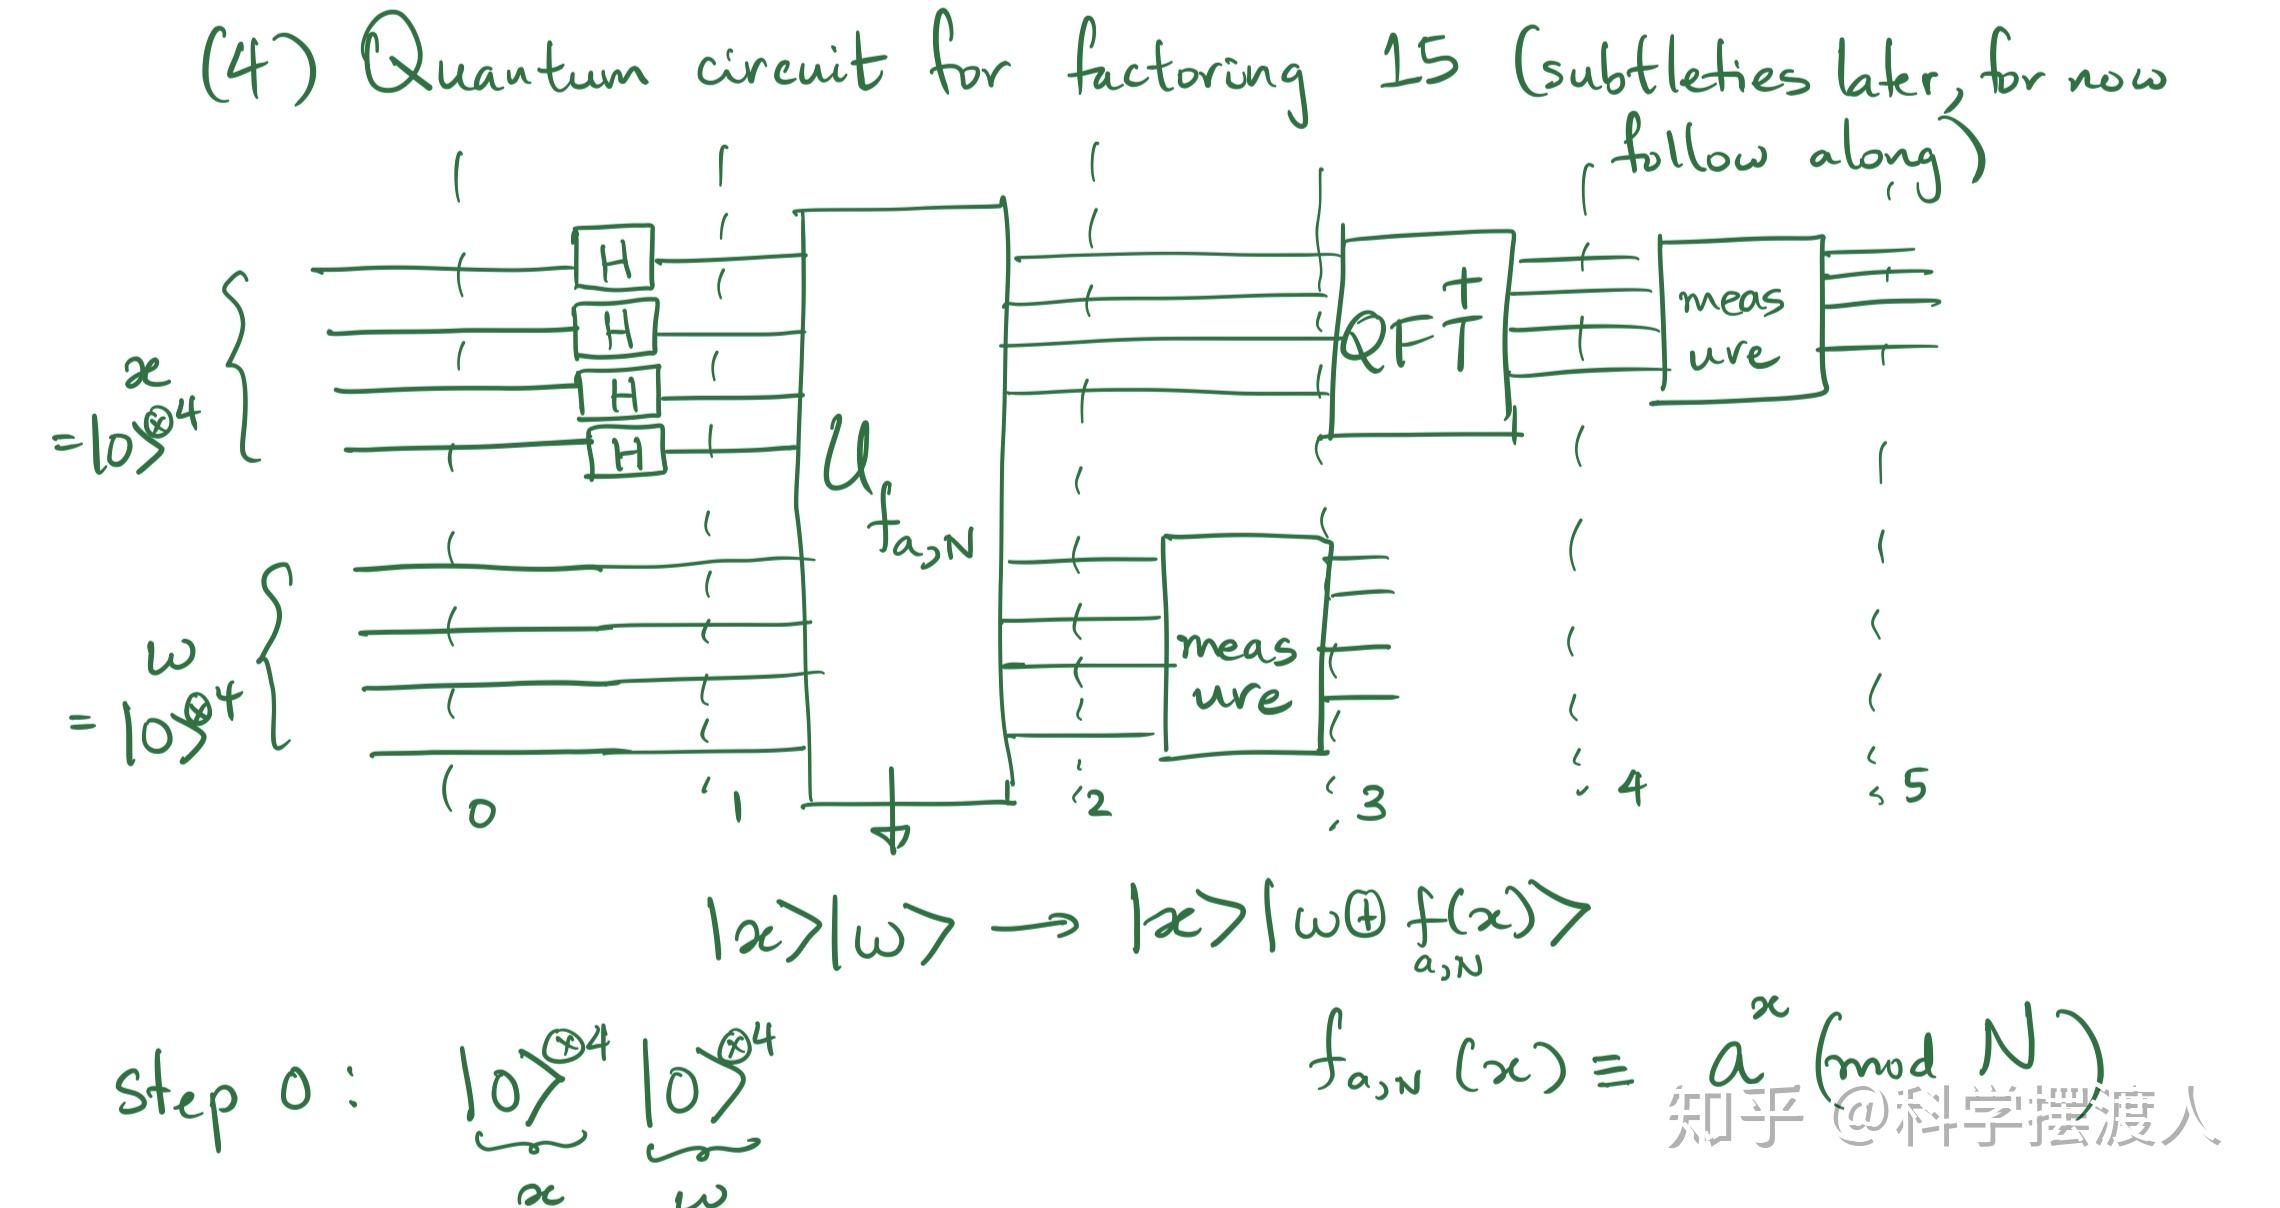 (4) Quantum circuit for factoring 15 (subtleties later, for now
follow along)
H
H
H
H
x
=|0>⊗4
w
=|0>⊗4
U f a,N
QFT†
meas
ure
meas
ure
0 1 2 3 4 5
|x>|w> → |x>|w⊕f(x)>
a,N
step 0: |0>⊗4 |0>⊗4
x w
f a,N (x) ≡ a^x (mod N)
知乎 @科学摆渡人